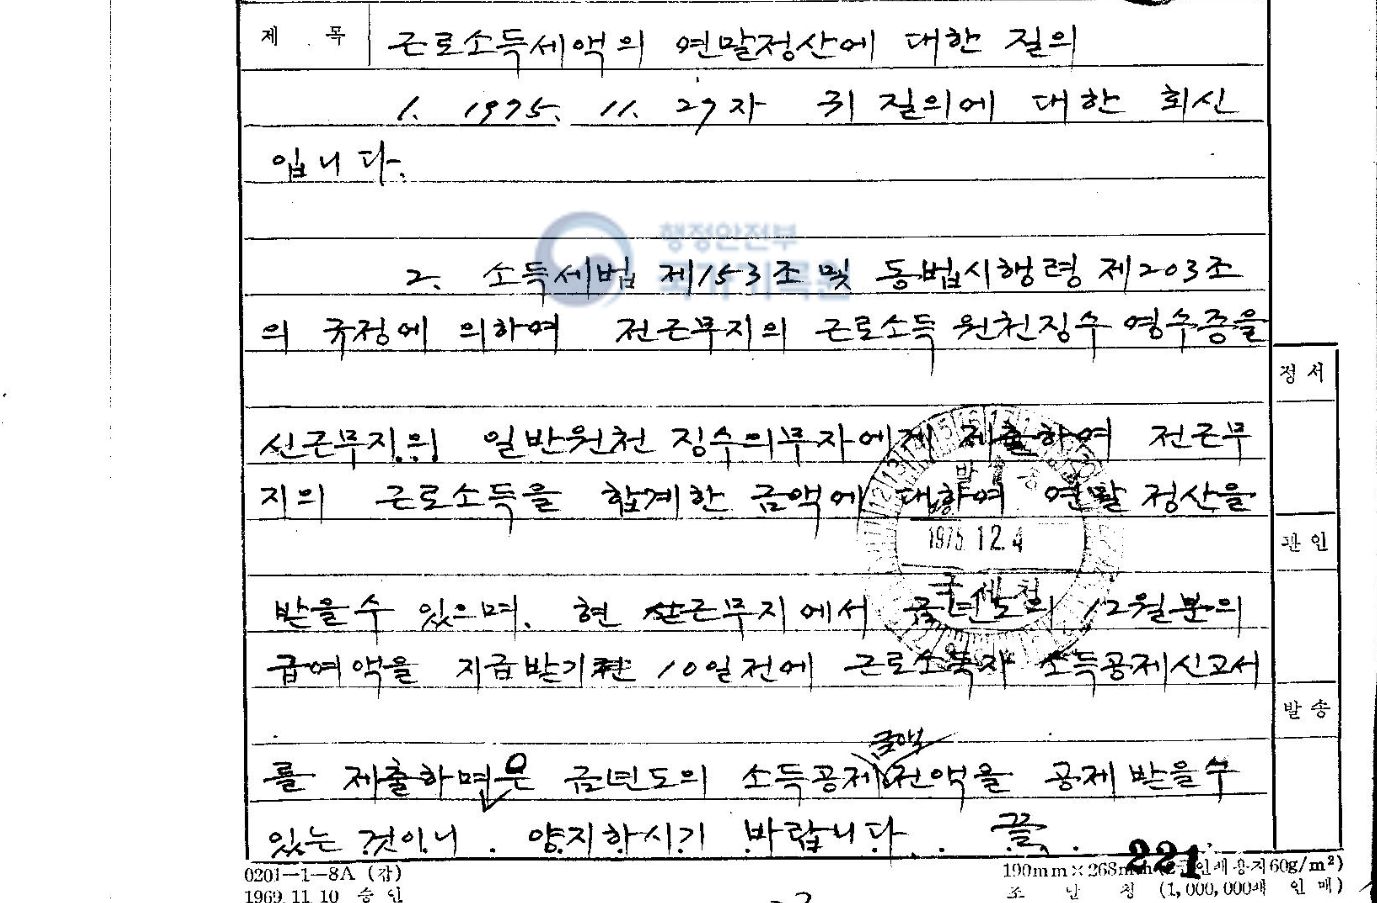 제 목 근로소득세액의 연말정산에 대한 질의
1. 1975. 11. 29자 귀 질의에 대한 회신
입니다.
행정안전부
국가기록원
2. 소득세법 제153조 및 동법시행령 제203조
의 규정에 의하여 전근무지의 근로소득 원천징수 영수증을
정서
신근무지의 일반원천 징수의무자에게 제출하여 전근무
발송
지의 근로소득을 합계한 금액에 대하여 연말 정산을
1975. 12. 4
관인
국세청
받을 수 있으며. 현 근무지에서 금년도의 12월분의
급여액을 지급받기 전 10일전에 근로소득자 소득공제신고서
발송
금액
를 제출하면은 금년도의 소득공제 전액을 공제 받을 수
있는 것이니 양지하시기 바랍니다. 끝.
221
0201-1-8A (갑)
190mm×268mm 인쇄용지60g/m²)
1969. 11. 10 승인
조달청 (1,000,000매 인쇄)